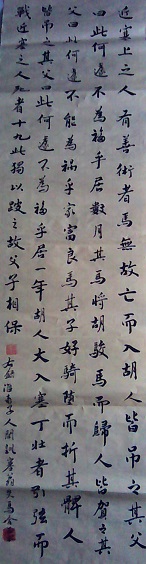 近塞上之人有善術者馬無故亡而入胡人皆弔之其父
曰此何遽不為福乎居數月其馬將胡駿馬而歸人皆賀之其
父曰此何遽不能為禍乎家富良馬其子好騎墮而折其髀人
皆弔之其父曰此何遽不為福乎居一年胡人大入塞丁壯者引弦而
戰近塞之人死者十九此獨以跛之故父子相保
右錄淮南子人間訓塞翁失馬